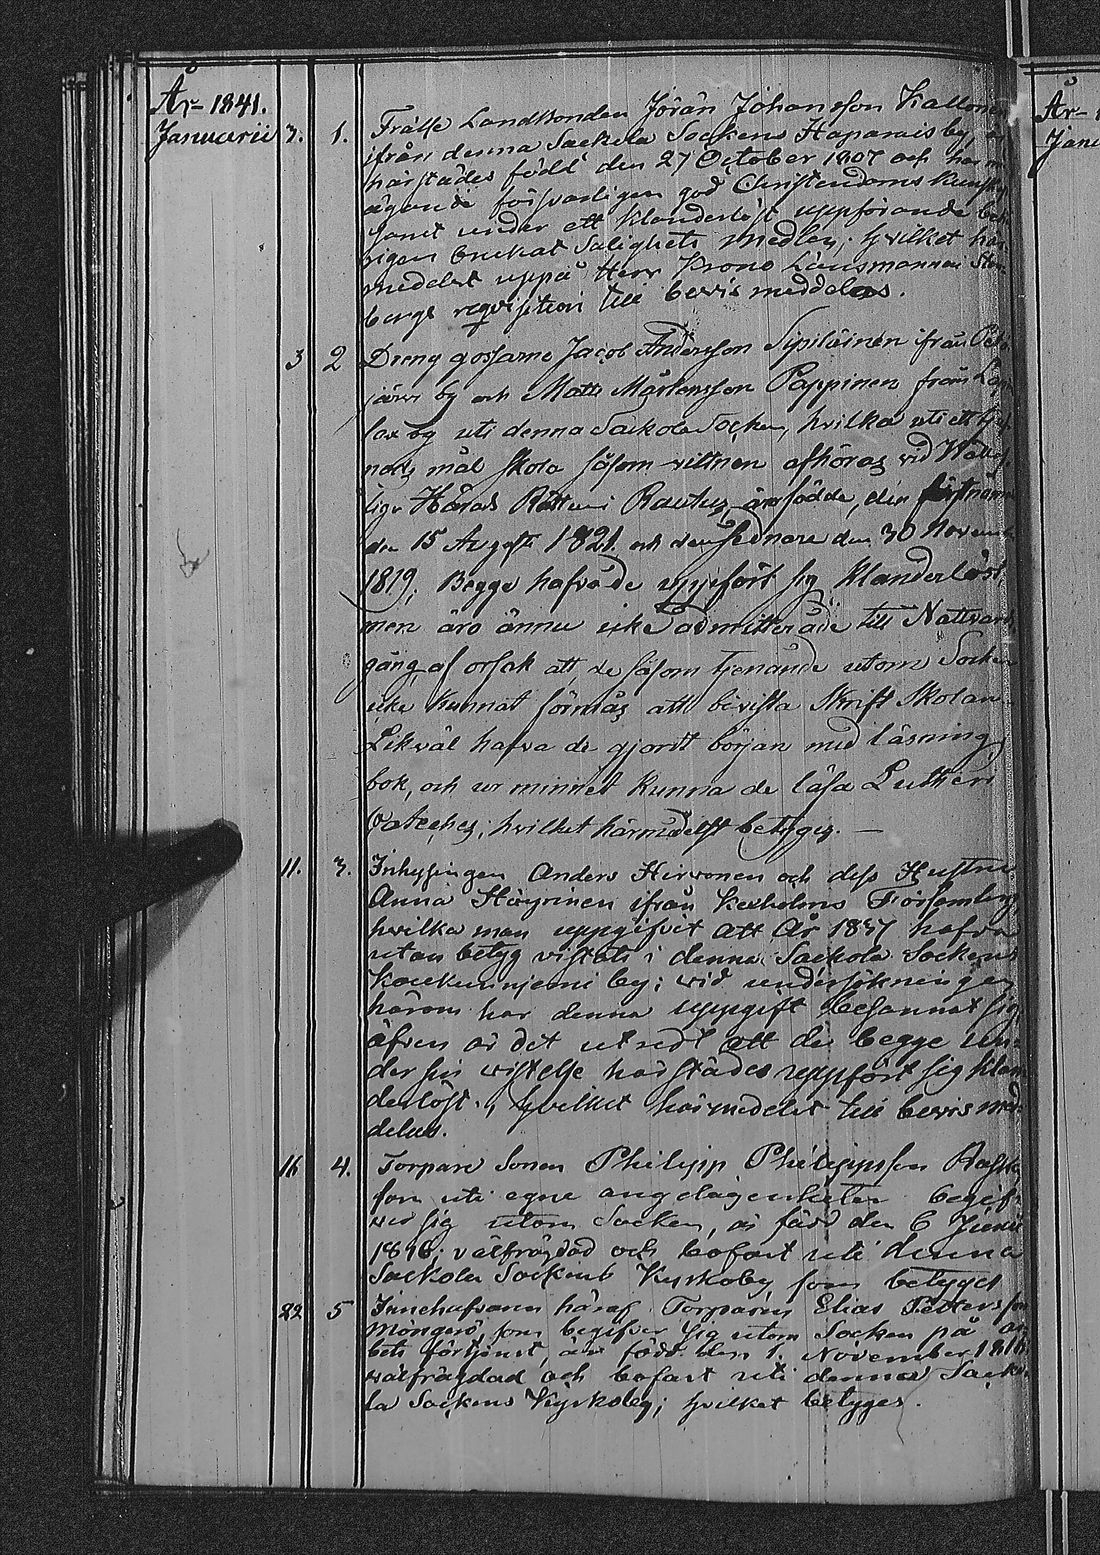 År 1841.
Januarii 3. 1. Frälse Landbonden Jöran Johansson Kallonen
ifrån denna Sackola Sockens Haparais by, är
härstädes född den 27 October 1807 och har
ägande försvarligen god Christendoms kunskap
samt under ett klanderlöst uppförande
brukat Salighets medlen; hvilket här
medelst uppå Herr Krono Länsmannen
bergs requisition till bevis meddelas.
3 2 Dreng gossarne Jacob Andersson Sipiläinen ifrån
järvi by och Matts Mårtensson Pappinen från
lax by uti denna Sackola Socken, hvilka uti ett
nads mål skola såsom vittnen afhöras vid
liga Härads Rätten i Rautus, äro födde, den förstnämn
den 15 Augusti 1821 och den sednare den 30 Novemb
1819; Begge hafva de uppfört sig klanderlöst
men äro ännu icke admitterade till Nattvards
gång af orsak att de såsom tjenande utom Socken
icke kunnat förmås att bivista Skrift Skolan.
Likväl hafva de gjordt början med läsning i
bok, och ur minnet kunna de läsa Lutheri
Cateches; hvilket härmedelst betygas. —
11. 3. Inhysingen Anders Hirvonen och dess Hustru
Anna Häyrinen ifrån Kexholms Församling,
hvilka man uppgifvit att År 1837 hafva
utan betyg vistats i denna Sackola Sockens
Koukunniemi by; vid undersökningen
härom har denna uppgift besannat sig
äfven är det utredt att de begge un
der sin vistelse härstädes uppfört sig klan
derlöst; hvilket härmedelst till bevis med
delas.
16 4. Torpare Sonen Philipp Philippsson
som uti egne angelägenheter begif
ver sig utom Socken, är född den 6 Junii
1816; välfrägdad och bofast uti denna
Sackola Sockens Kyrkoby som betyges
22 5 Innehafvaren häraf Torparen Elias Petersson
som begifver sig utom Socken på ar
bets förtjenst, är född den 1. November 1816
välfrägdad och bofast uti denna Sacko
la Sockens Kyrkoby; hvilket betyges.
År 1
Janu